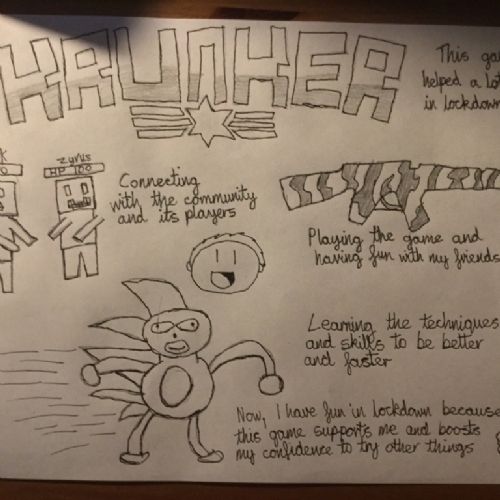 KRUNKER
This
helped a lot
in lockdown
zyrus
HP 100
Connecting
with the community
and its players
Playing the game and
having fun with my friends
Learning the techniques
and skills to be better
and faster
Now, I have fun in lockdown because
this game supports me and boosts
my confidence to try other things